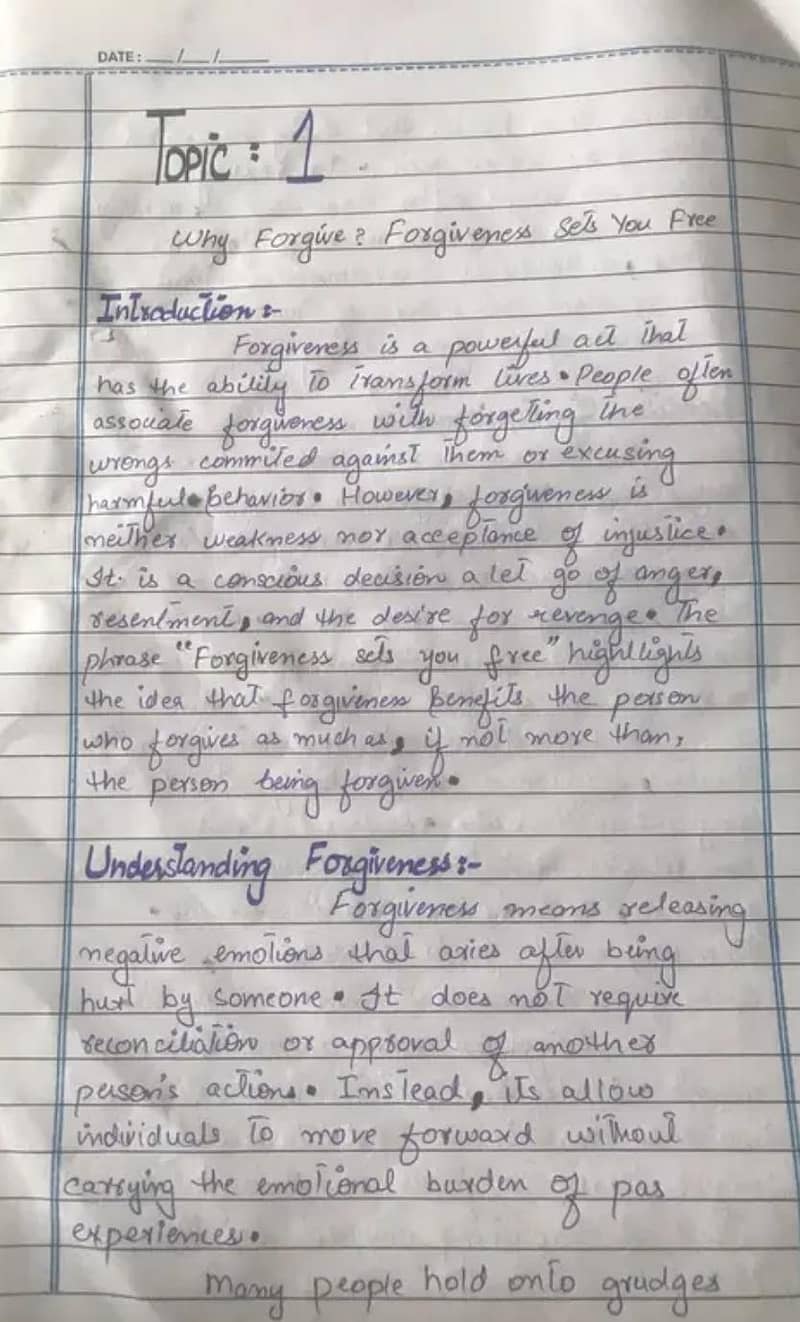 DATE: __/__/____
Topic : 1
Why Forgive? Forgiveness Sets You Free
Introduction :-
Forgiveness is a powerful act that
has the ability to transform lives. People often
associate forgiveness with forgeting the
wrongs commited against them or excusing
harmful behavior. However, forgiveness is
neither weakness nor acceptance of injustice.
It is a conscious decision a let go of anger,
resentment, and the desire for revenge. The
phrase "Forgiveness sets you free" highllights
the idea that forgiveness Benefits the person
who forgives as much as, if not more than,
the person being forgiven.
Understanding Forgiveness :-
Forgiveness means releasing
negative emotions that aries after being
hurt by someone. It does not require
reconciliation or approval of another
person's actions. Instead, its allow
individuals to move forward without
carrying the emotional burden of pas
experiences.
Many people hold onto grudges